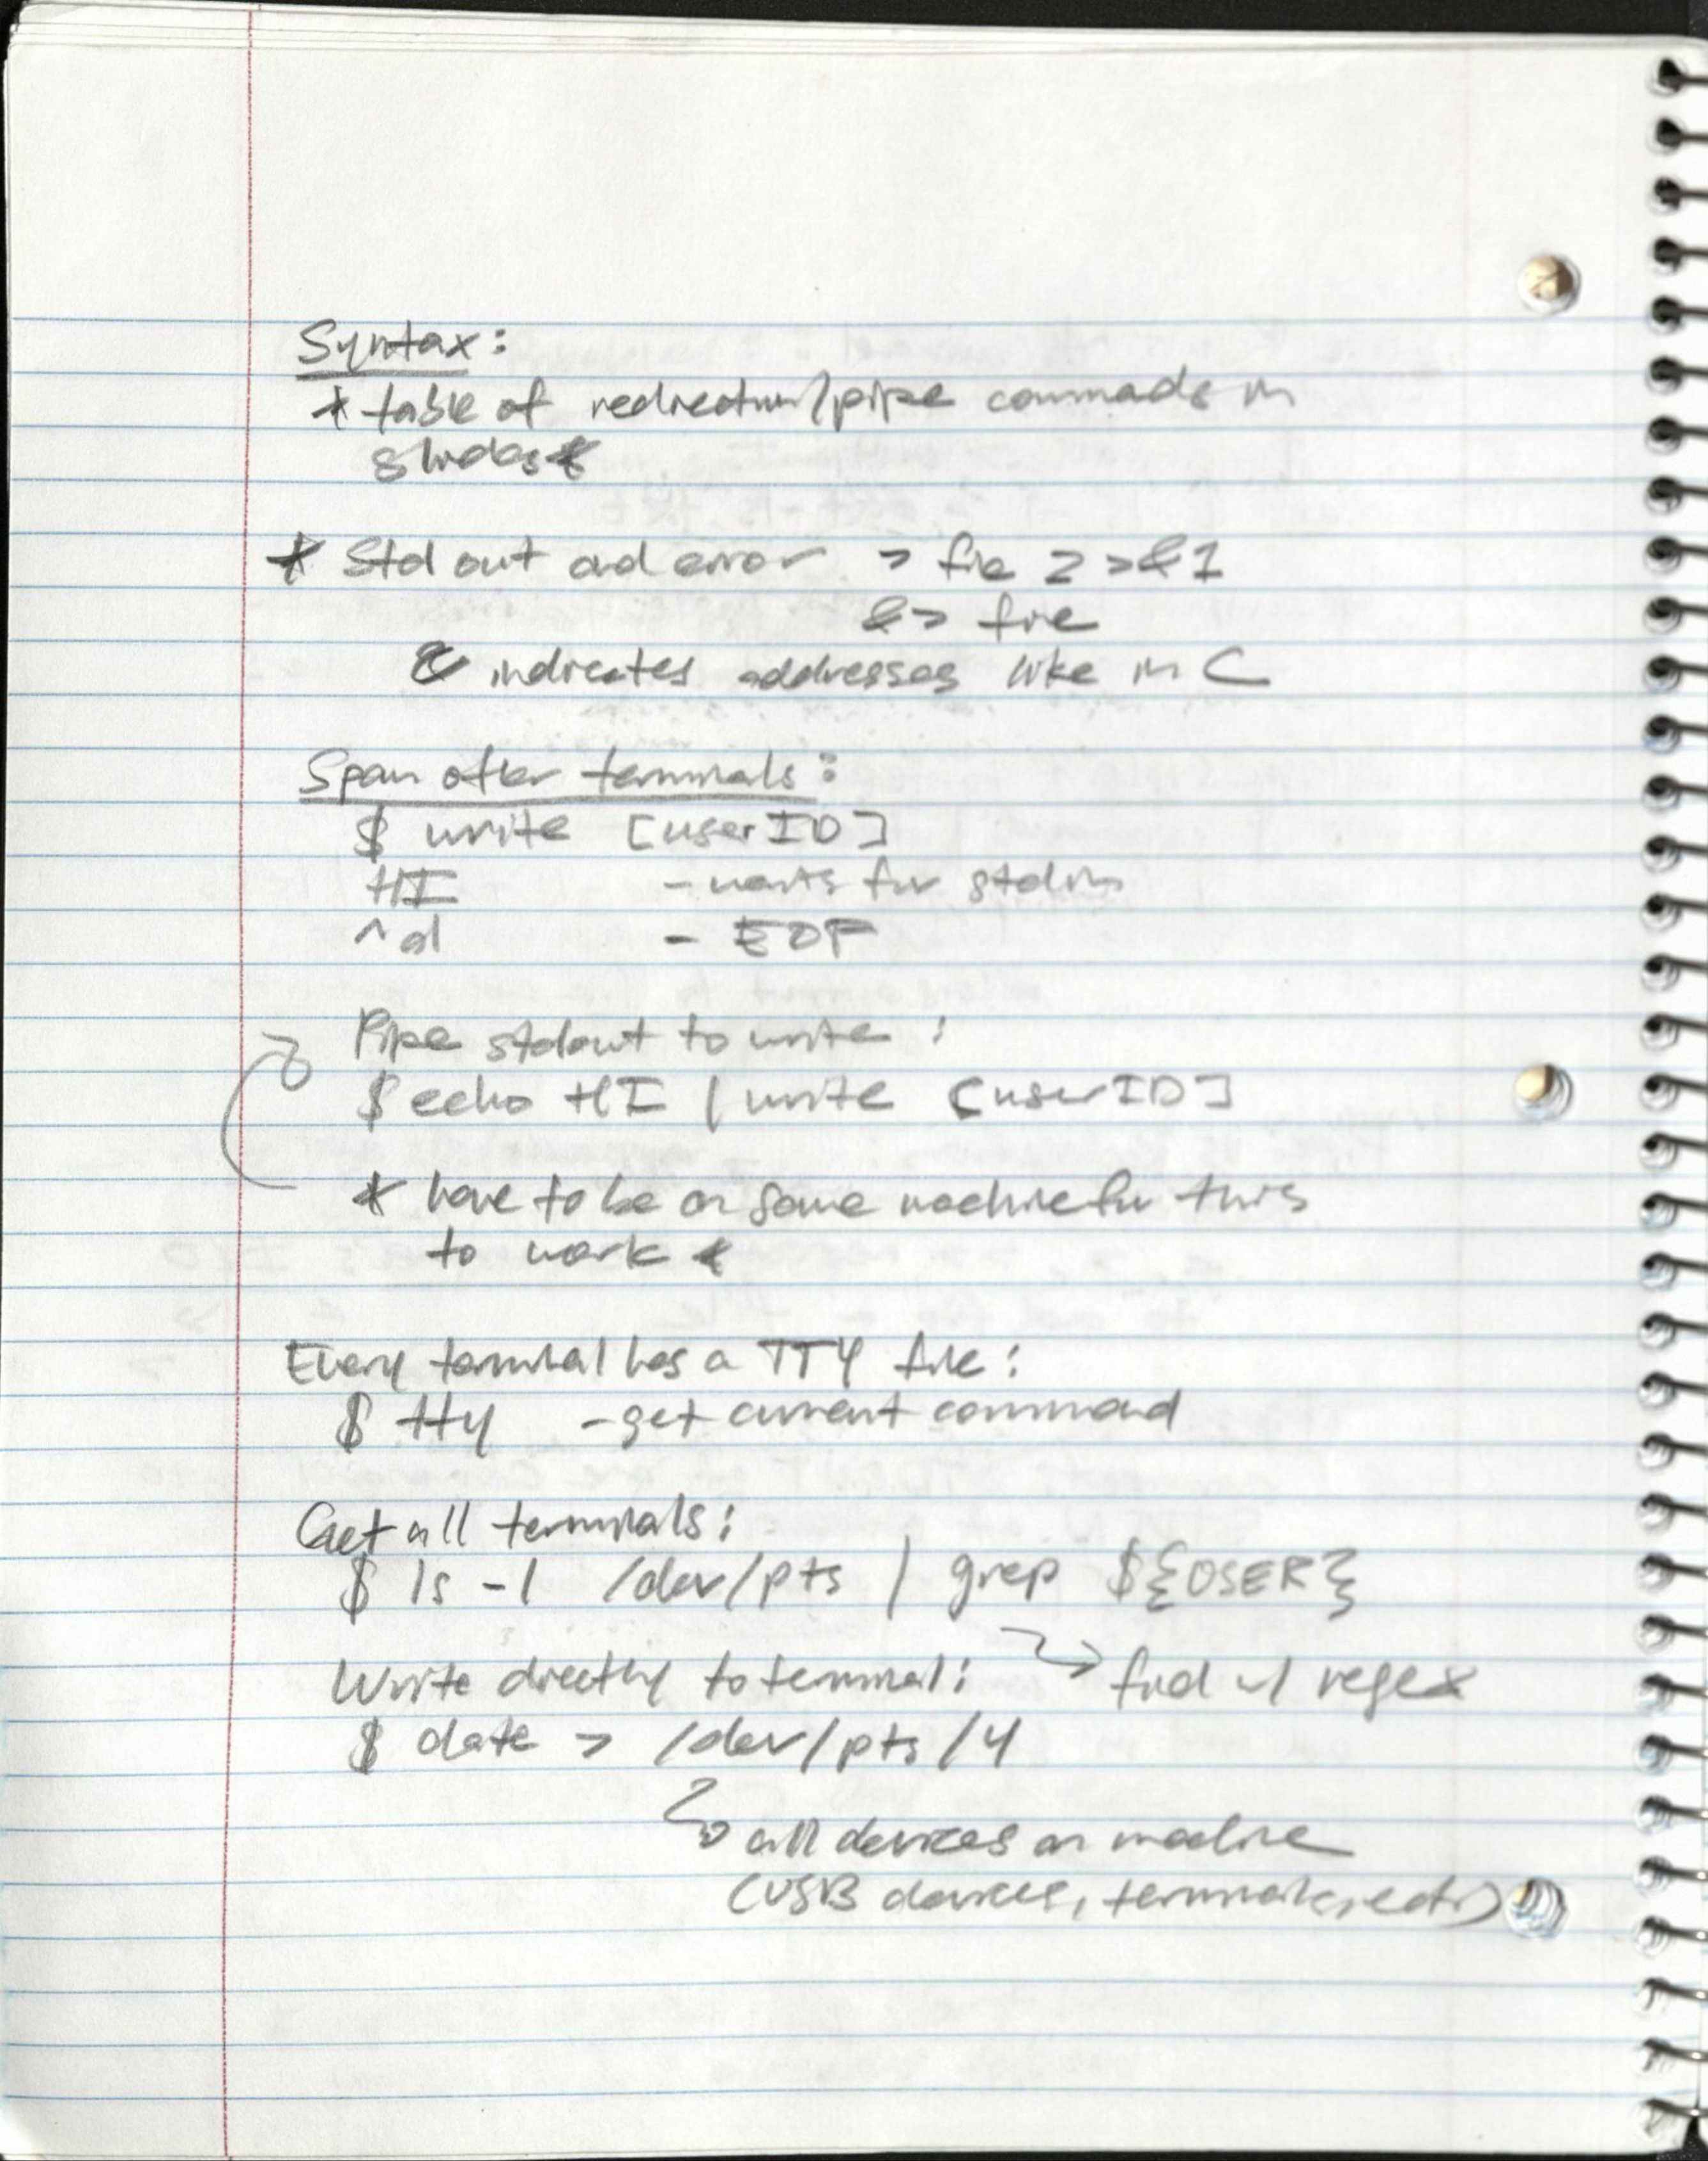 Syntax:
* table of redirection/pipe commads in
slides *
* Std out and error > file 2>&1
&> file
& indicates addresses like in C
Spam other terminals:
$ write [userID]
HI - waits for stdin
^d - EOF
Pipe stdout to write:
$ echo HI | write [userID]
* have to be on same machine for this
to work *
Every terminal has a TTY file:
$ tty - get current command
Get all terminals:
$ ls -l /dev/pts | grep ${USER}
Write directly to terminal: find w/ regex
$ date > /dev/pts/4
all devices on machine
(USB devices, terminals, ect.)